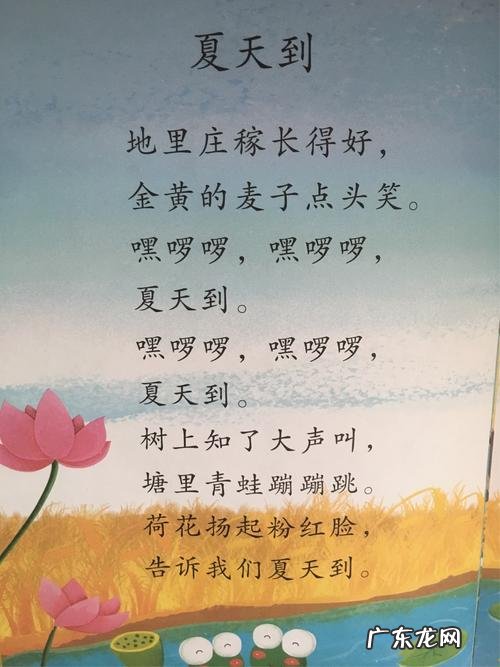 夏天到
地里庄稼长得好，
金黄的麦子点头笑。
嘿啰啰，嘿啰啰，
夏天到。
嘿啰啰，嘿啰啰，
夏天到。
树上知了大声叫，
塘里青蛙蹦蹦跳。
荷花扬起粉红脸，
告诉我们夏天到。
广东龙网